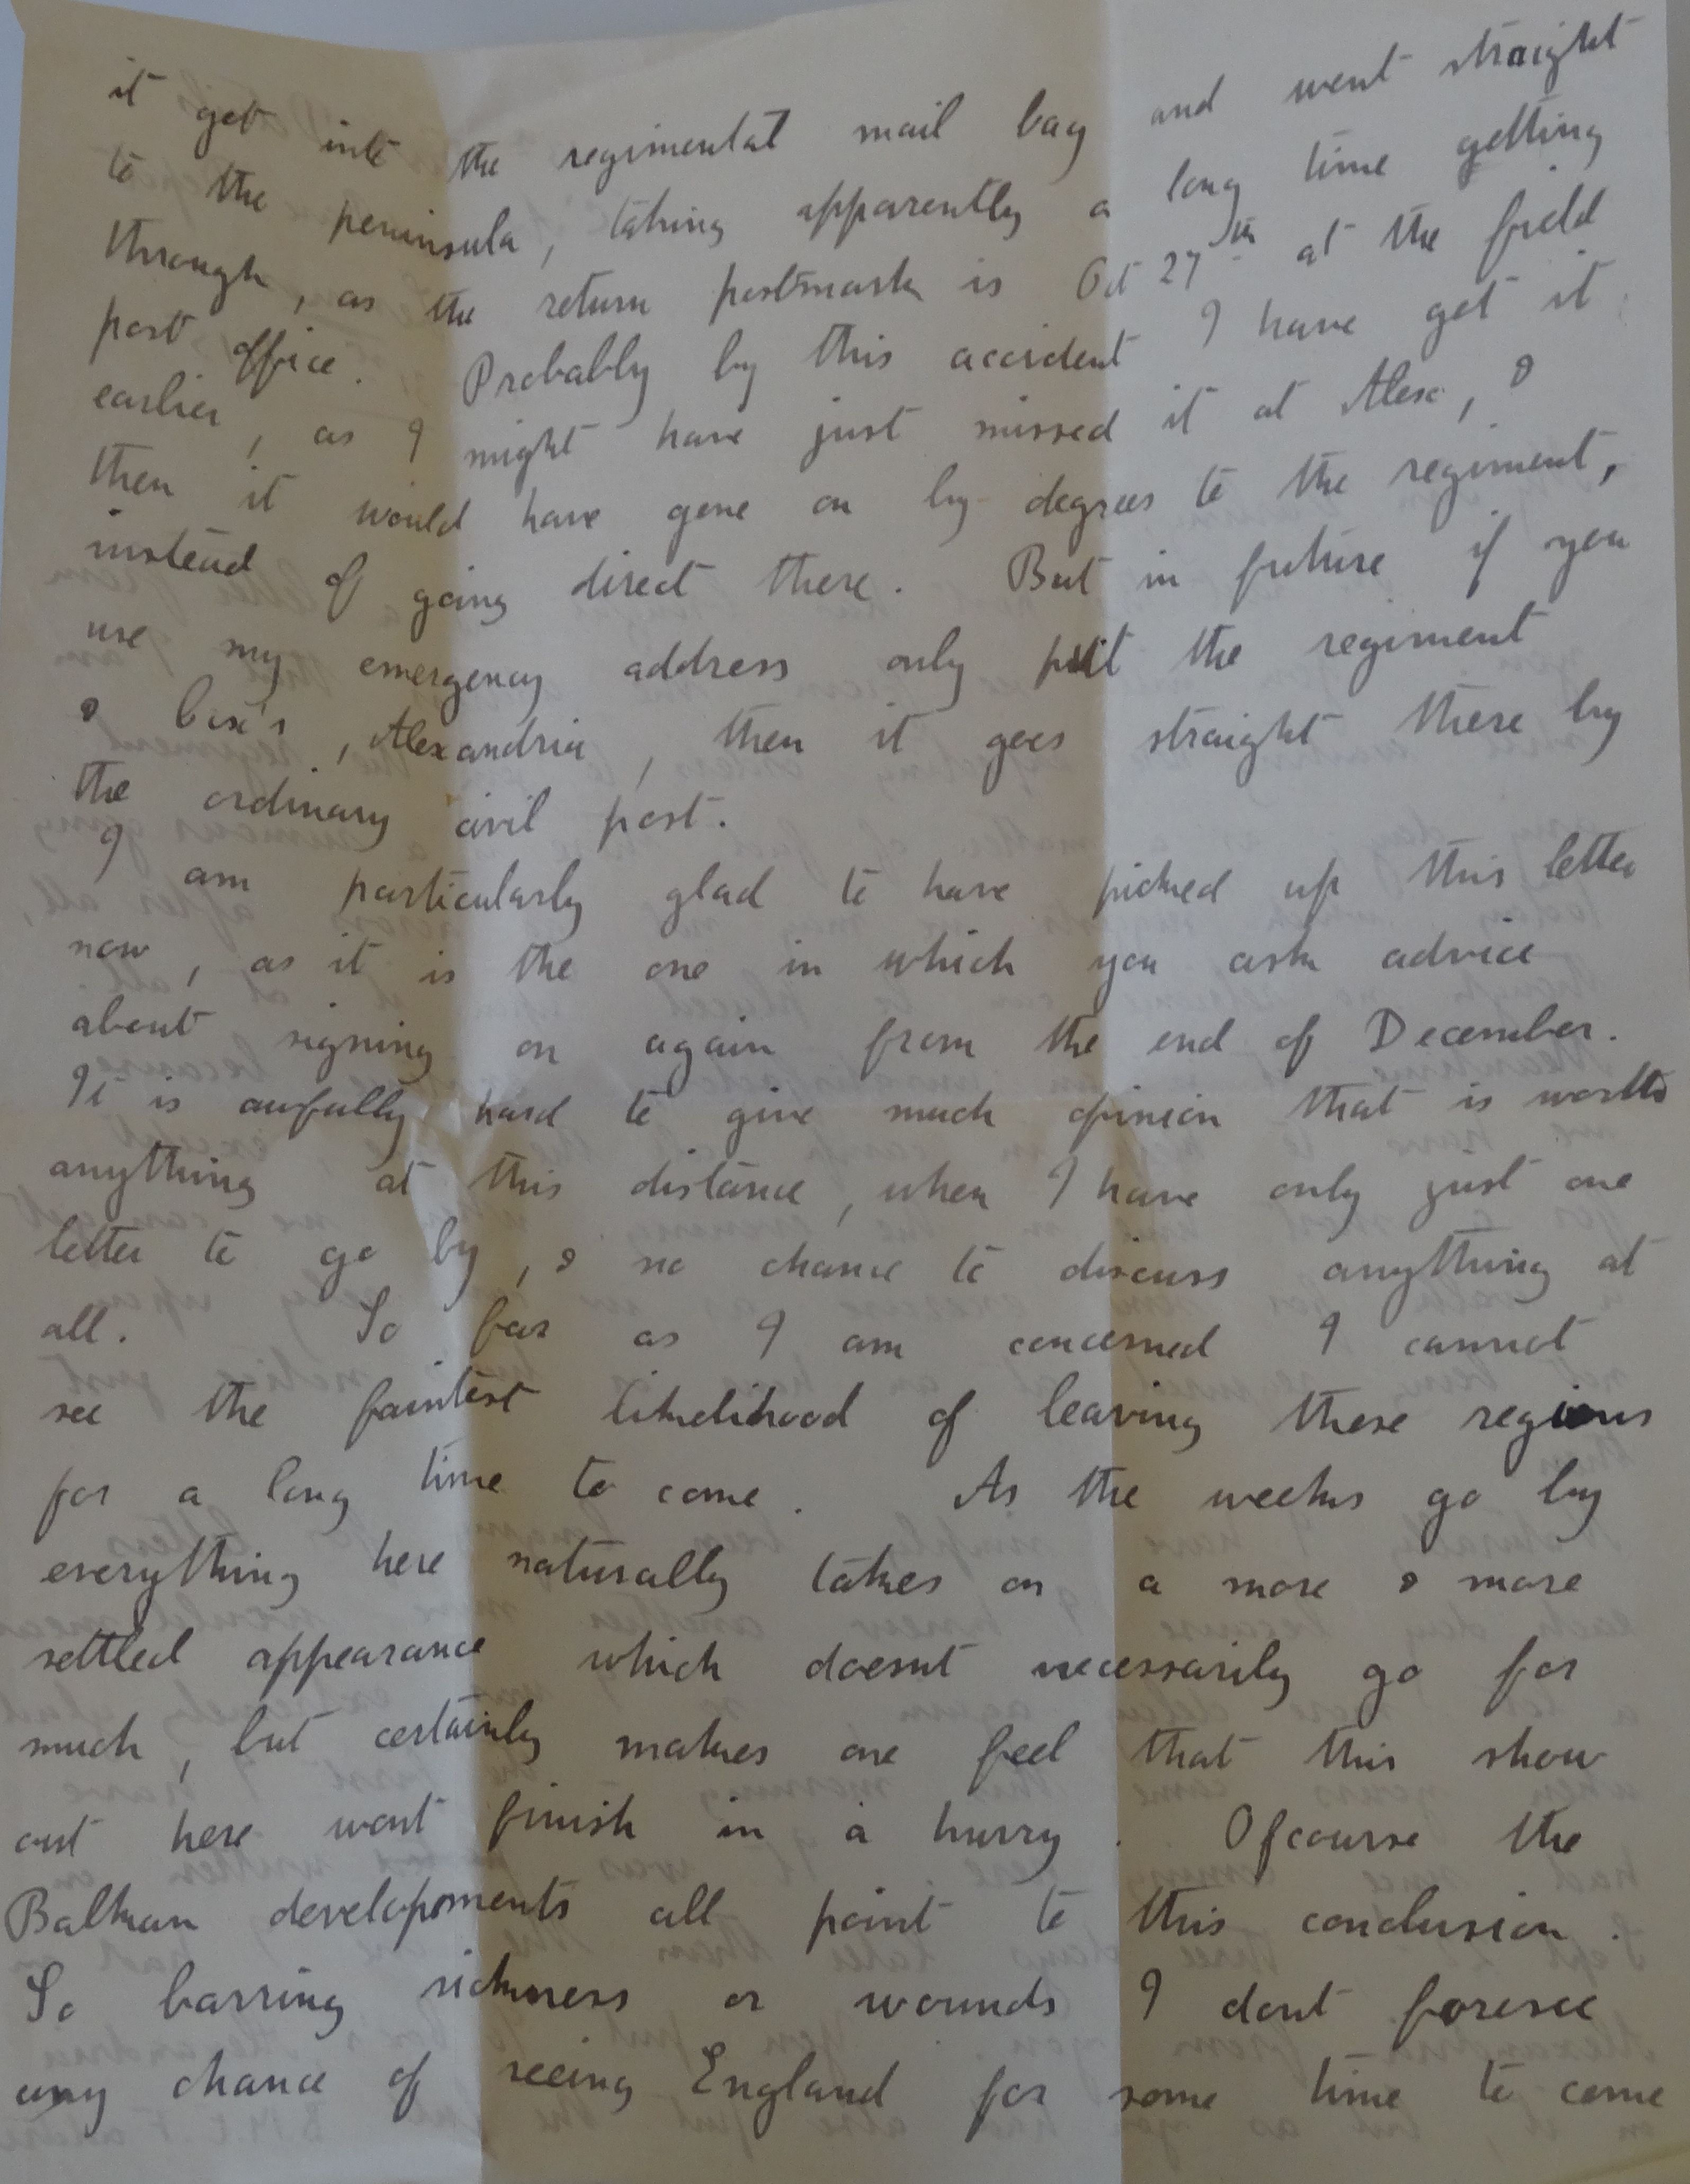 it got into the regimental mail bag and went straight
to the peninsula, taking apparently a long time getting
through, as the return postmark is Oct 27th at the field
post office. Probably by this accident I have got it
earlier, as I might have just missed it at Alex, &
then it would have gone on by degrees to the regiment,
instead of going direct there. But in future if you
use my emergency address only put the regiment
& Cox's, Alexandria, then it goes straight there by
the ordinary civil post.
I am particularly glad to have picked up this letter
now, as it is the one in which you ask advice
about signing on again from the end of December.
It is awfully hard to give much opinion that is worth
anything at this distance, when I have only just one
letter to go by, & no chance to discuss anything at
all. So far as I am concerned I cannot
see the faintest likelihood of leaving these regions
for a long time to come. As the weeks go by
everything here naturally takes on a more & more
settled appearance which doesnt necessarily go for
much, but certainly makes one feel that this show
out here wont finish in a hurry. Ofcourse the
Balkan developments all point to this conclusion.
So barring sickness or wounds I dont foresee
any chance of seeing England for some time to come